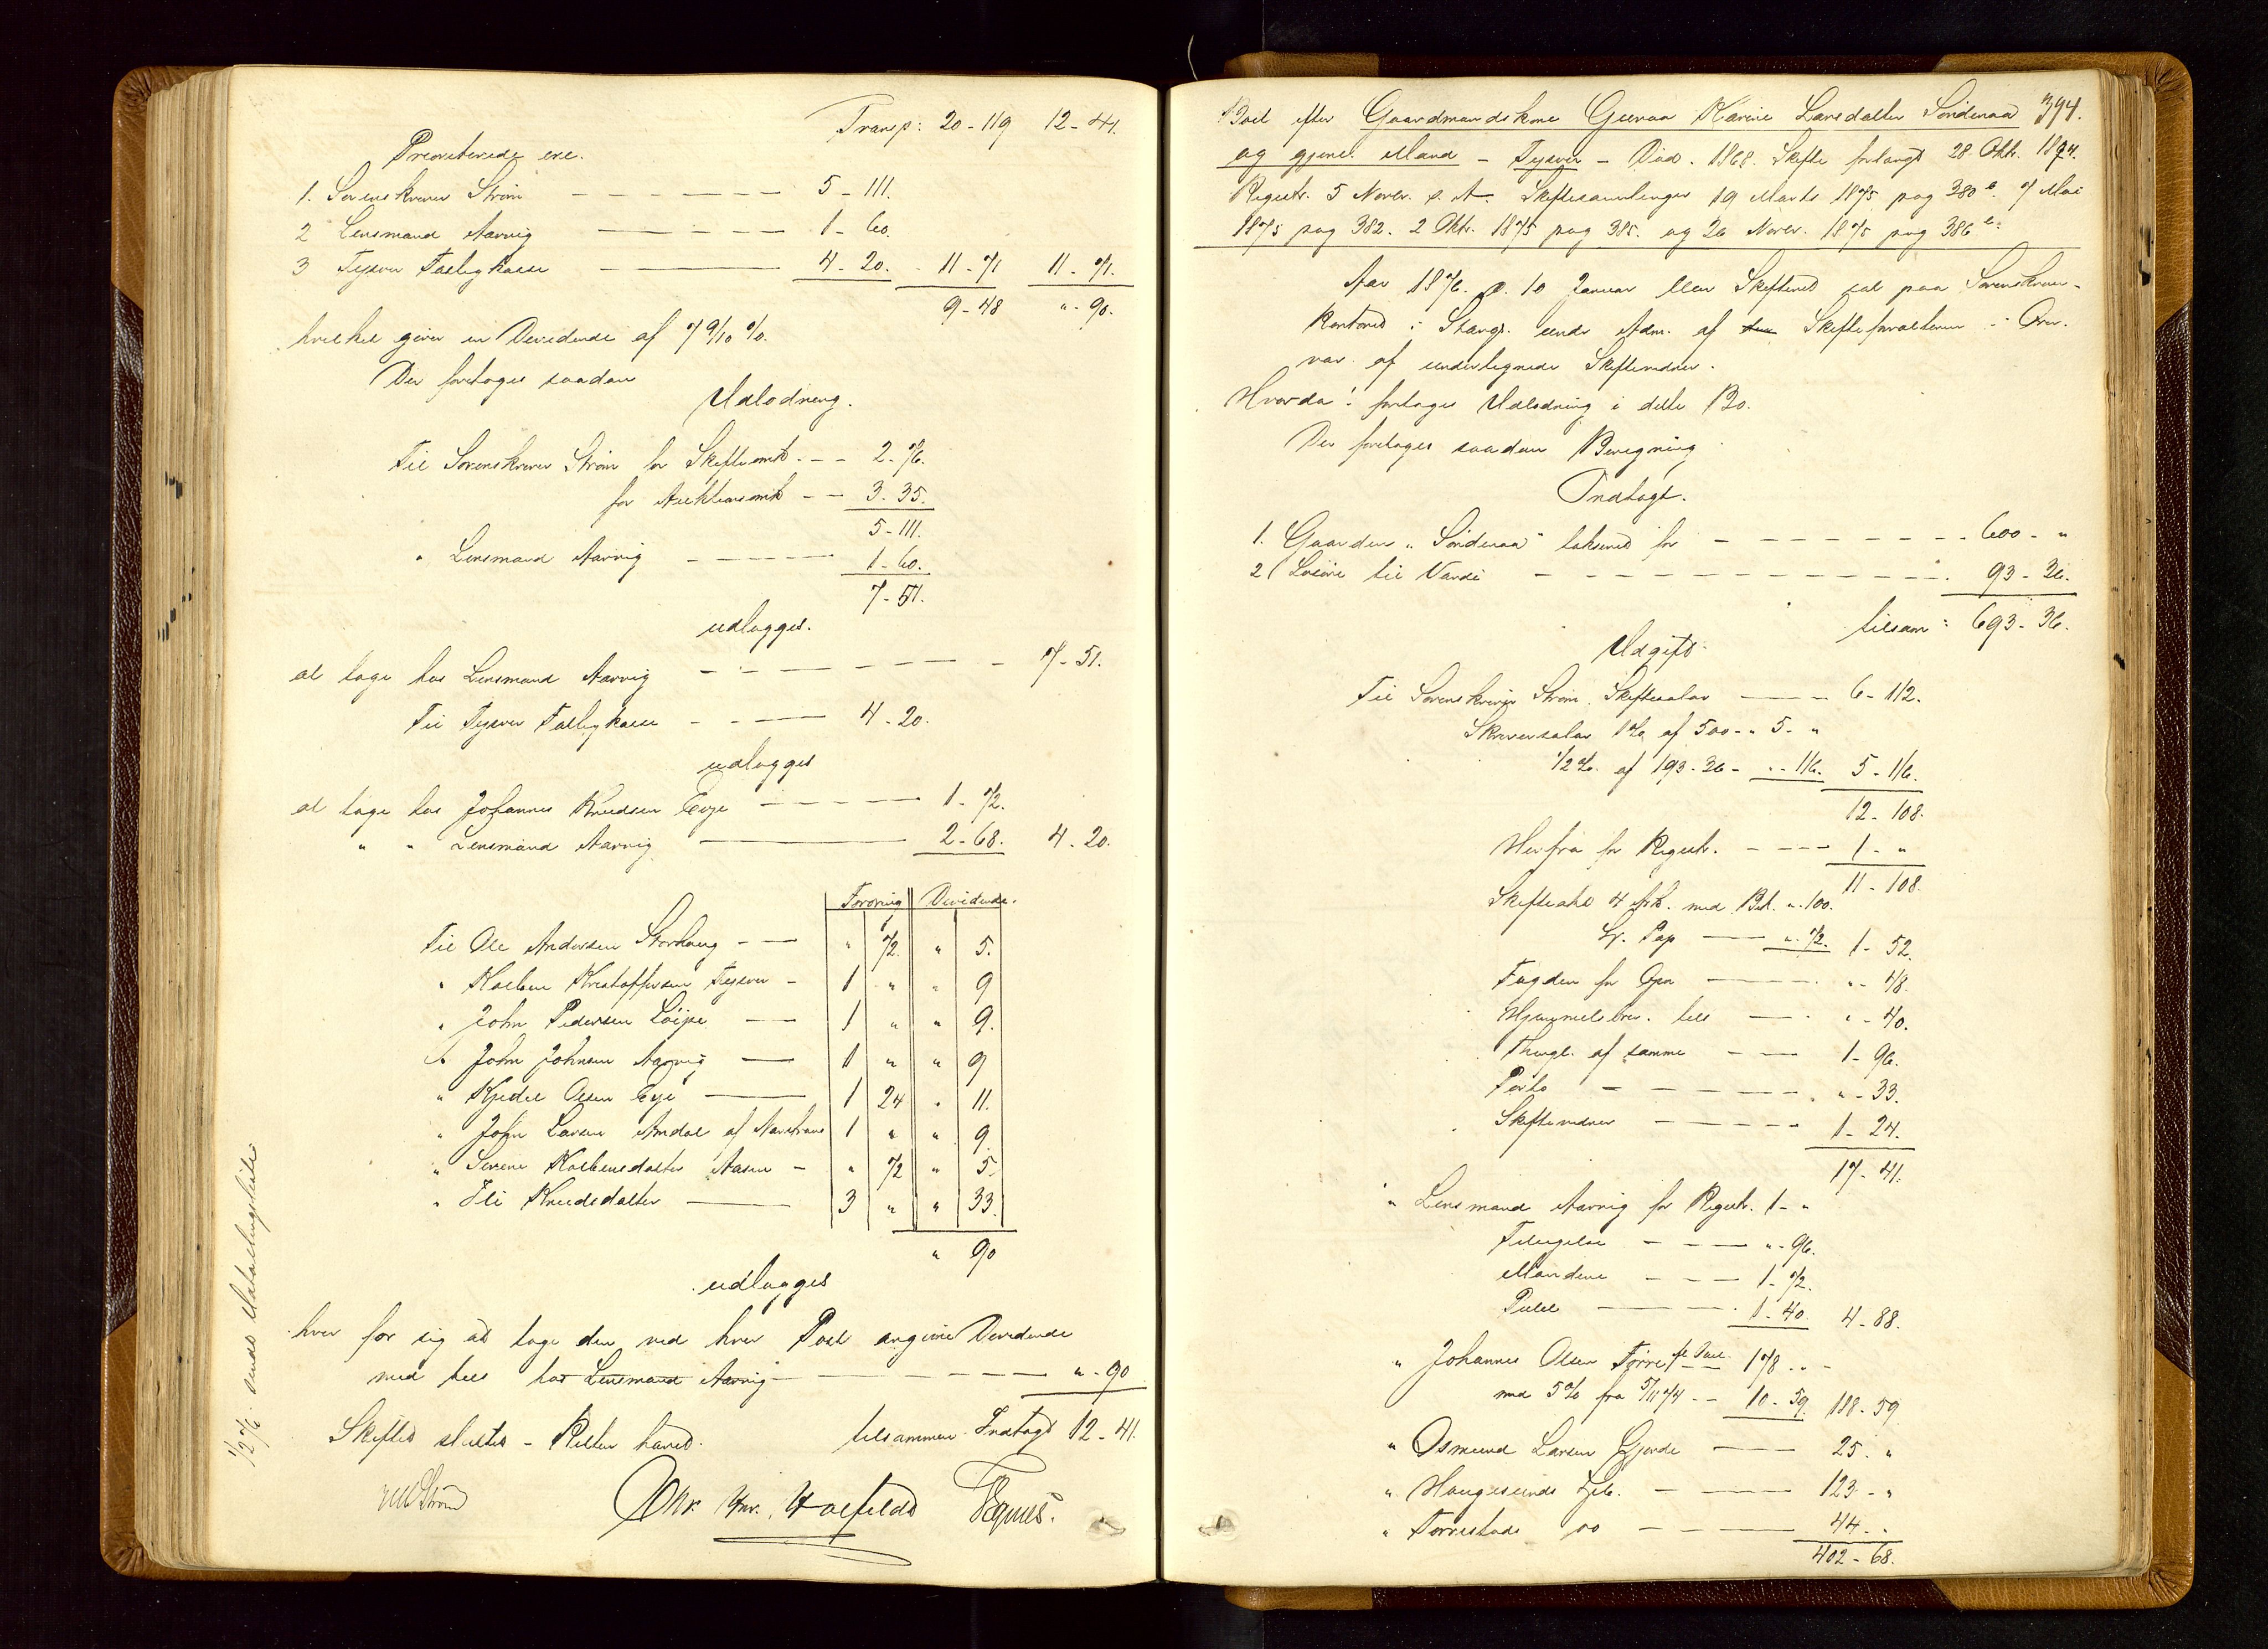 Transp: 20-119 12-41.
Prioriterede ere.
1. Sorenskriver Strøm — 5-111.
2 Lensmand Aarvig — 1-60.
3 Tysvær Fattigkasse — 4-20. 11-71 11-71.
9-48 "-90.
hvilket giver en Dividende af 7 9/10 %.
Der foretoges saadan
Udlodning.
Til Sorenskriver Strøm for Skifteomk. - - 2.76.
for Auktionsomk - - 3.35.
5-111.
" Lensmand Aarvig — 1-60.
7-51.
udlægges.
at tage hos Lensmand Aarvig — 7-51.
Til Tysvær Fattigkasse — 4-20.
udlægges
at tage hos Johannes Knudsen Eoje — 1-72.
" " Lensmand Aarvig — 2-68. 4-20.
Fordring Dividende.
Til Ole Andersen Storhaug — " 72. " 5.
" Kolben Kristoffersen Tysvær — 1 " " 9
" John Pedersen Løipe — 1 " " 9.
" John Johnsen Aarvig — 1 " " 9
" Kjedel Olsen Eoje — 1 24 " 11.
" John Larsen Amdal af Narstrand 1 " " 9
" Serene Kolbensdatter Aasen — " 72 " 5.
" Ili Knudsdatter — 3 " " 33.
" 90
udlægges
hver for sig at tage den ved hver Post angivne Dividende
med tils hos Lensmand Aarvig — "-90
Skiftet sluttes - Retten hævet. tilsammen Indtægt 12-41.
Strøm Chr. Hnr. Hoffeldt Tegnes.
1/2 76. sendt
394.
Boet efter Gaardmandskone Gunna Karine Larsdatter Søndenaa
og gjenl. Mand - Tysvær - Død. 1868. Skifte forlangt 28 Oktr. 1874.
Registr. 5 Novbr. s. A. Skiftesamlinger 19 Marts 1875 pag 380 b. 7 Mai
1875 pag 382. 2 Oktr. 1875 pag 385. og 26 Novbr. 1875 pag 386 b.
Aar 1876. d. 10 Januar blev Skifteret sat paa Sorenskriver-
kontoret i Stangl. under Adm. af Skifteforvalteren i Over-
vær af undertegnede Skiftevidner.
Hvorda: foretoges Udlodning i dette Bo.
Der foretoges saadan Beregning
Indtægt.
1. Gaarden "Søndenaa" takseret for — 600-"
2 Løsøre til Værdi — 93-36.
tilsam: 693-36.
Udgift.
Til Sorenskriver Strøm. Skiftesalær — 6-112.
Skriversalær 1% af 500-" 5-"
1/2 %. af 193-36 - "-116. 5-116.
12-108.
Herfra for Registr. — 1-"
11-108.
Skifteakt 4 Ark. med Bek. "-100.
St. Pap — "-72. 1-52.
Fogden for Opn — "-48.
Hjemmelsbrev. tils — "-40.
Thingl. af samme — 1-96.
Porto — "-33.
Skiftevidner — 1-24.
17-41.
" Lensmand Aarvig for Registr. 1-"
Tilsigelse — "-96.
Mændene — 1-72.
— 1-40. 4-88.
" Johannes Olsen Førre 178 "
med 5% fra 5/11 74 — 10-59. 188-59
" Osmund Larsen Gjerde — 25-"
" Haugesunds — 123-"
" Torvestads do — 44-"
402-68.